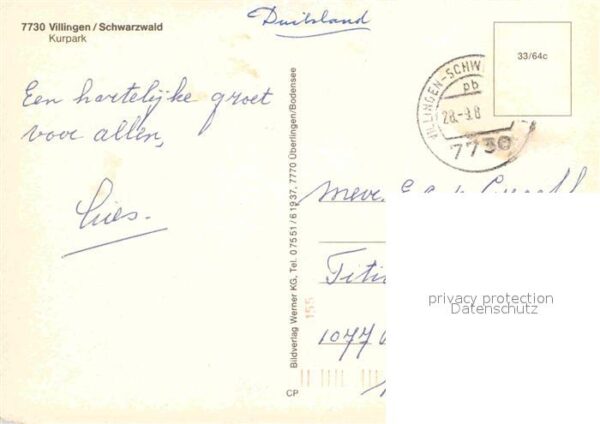 7730 Villingen / Schwarzwald
Kurpark
Duitsland
33/64c
VILLINGEN-SCHW
pb
28.-9.8
7730
Een hartelijke groet
voor allen,
Bildverlag Werner KG, Tel. 0 75 51 / 6 19 37, 7770 Überlingen/Bodensee
155
CP
Mevr.
1077
privacy protection
Datenschutz